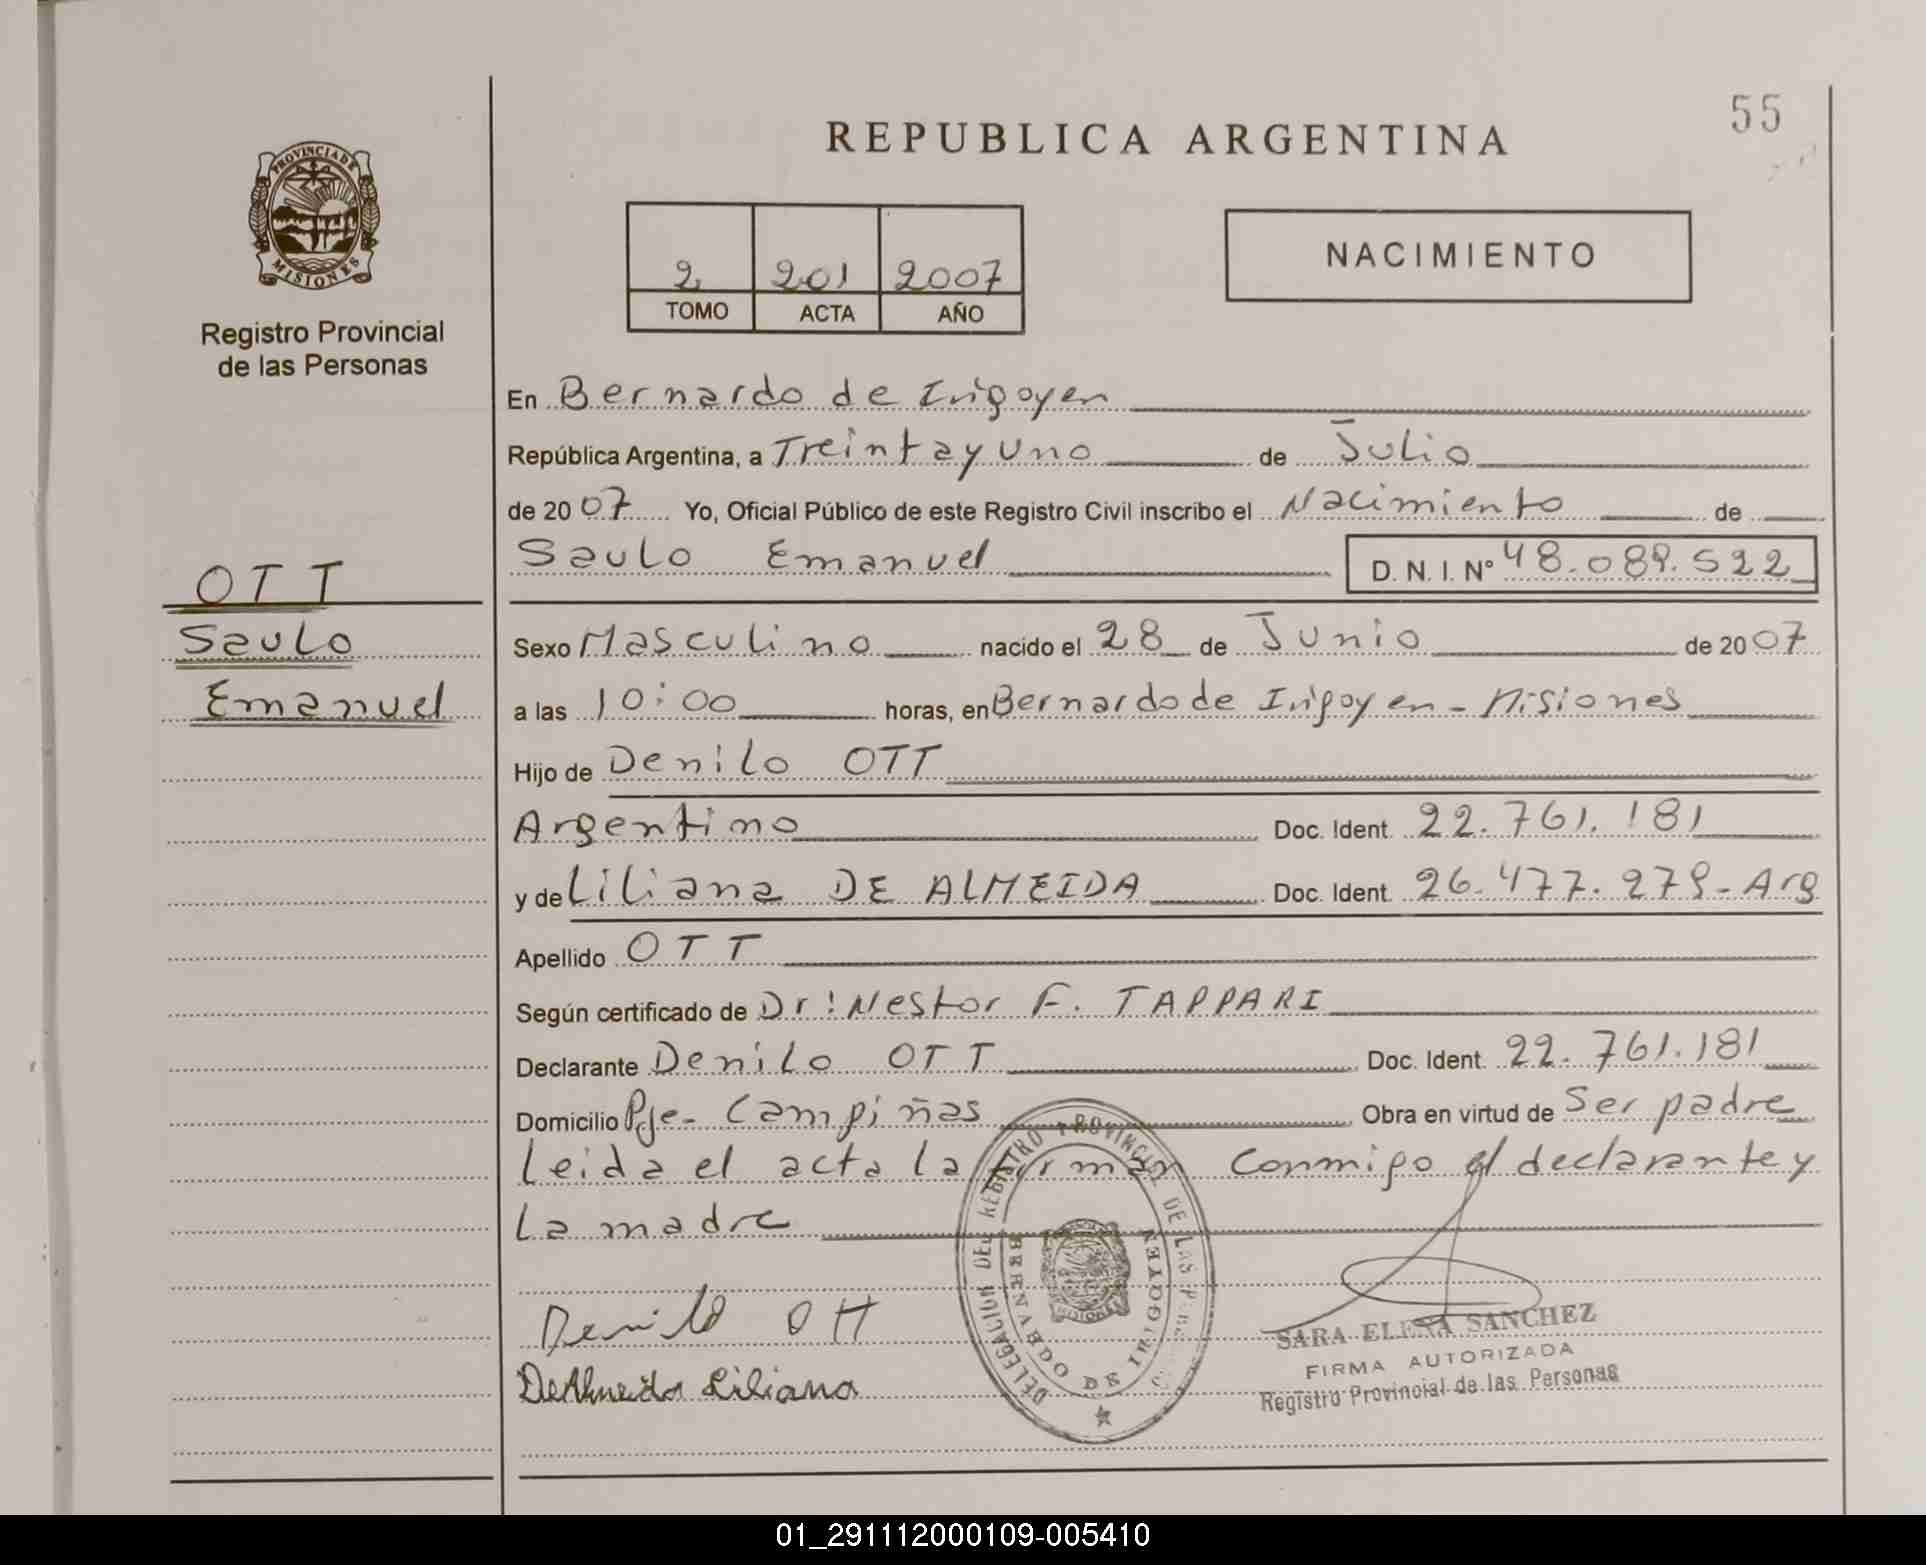 55
REPUBLICA ARGENTINA
PROVINCIA DE
MISIONES
Registro Provincial
de las Personas
2 201 2007
TOMO ACTA AÑO
NACIMIENTO
En Bernardo de Irigoyen
República Argentina, a Treinta y uno de Julio
de 2007 Yo, Oficial Público de este Registro Civil inscribo el Nacimiento de
Saulo Emanuel D. N. I. N° 48.089.522
OTT
Saulo
Emanuel
Sexo Masculino nacido el 28 de Junio de 2007
a las 10:00 horas, en Bernardo de Irigoyen - Misiones
Hijo de Denilo OTT
Argentino Doc. Ident. 22.761.181
y de Liliana DE ALMEIDA Doc. Ident. 26.477.279 - Arg
Apellido OTT
Según certificado de Dr: Nestor F. TAPPARI
Declarante Denilo OTT Doc. Ident. 22.761.181
Domicilio Pje- Campiñas Obra en virtud de Ser padre
Leida el acta la firman conmigo el declarante y
la madre
DELEGACION DEL REGISTRO PROVINCIAL DE LAS
BERNARDO DE IRIGOYEN
MISIONES
Denilo Ott
DeAlmeida Liliana
SARA ELENA SANCHEZ
FIRMA AUTORIZADA
Registro Provincial de las Personas
01_291112000109-005410